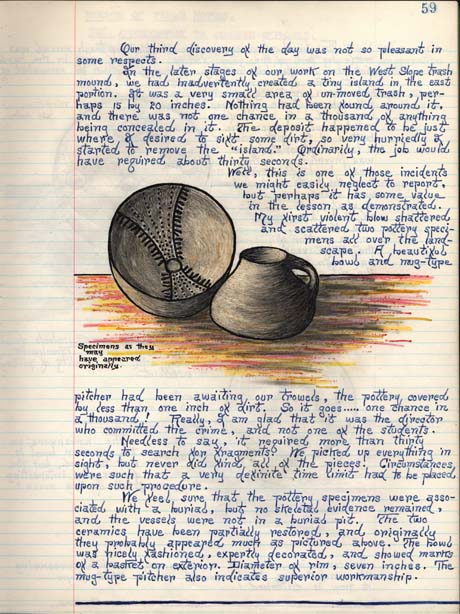 59
Our third discovery of the day was not so pleasant in
some respects.
In the later stages of our work on the West Slope trash
mound, we had inadvertently created a tiny island in the east
portion. It was a very small area of un-moved trash, per-
haps 15 by 20 inches. Nothing had been found around it,
and there was not one chance in a thousand of anything
being concealed in it. The deposit happened to be just
where I desired to sift some dirt, so very hurriedly I
started to remove the "island." Ordinarily, the job would
have required about thirty seconds.
Well, this is one of those incidents
we might easily neglect to report,
but perhaps it has some value
in the lesson as demonstrated.
My first violent blow shattered
and scattered two pottery speci-
mens all over the land-
scape. A beautiful
bowl and mug-type
Specimens as they
may
have appeared
originally.
pitcher had been awaiting our trowels, the pottery covered
by less than one inch of dirt. So it goes..... one chance in
a thousand! Really, I am glad that it was the director
who committed the crime, and not one of the students.
Needless to say, it required more than thirty
seconds to search for fragments! We picked up everything in
sight, but never did find all of the pieces. Circumstances
were such that a very definite time limit had to be placed
upon such procedure.
We feel sure that the pottery specimens were asso-
ciated with a burial, but no skeletal evidence remained,
and the vessels were not in a burial pit. The two
ceramics have been partially restored, and originally
they probably appeared much as pictured above. The bowl
was nicely fashioned, expertly decorated, and showed marks
of a basket on exterior. Diameter of rim, seven inches. The
mug-type pitcher also indicates superior workmanship.